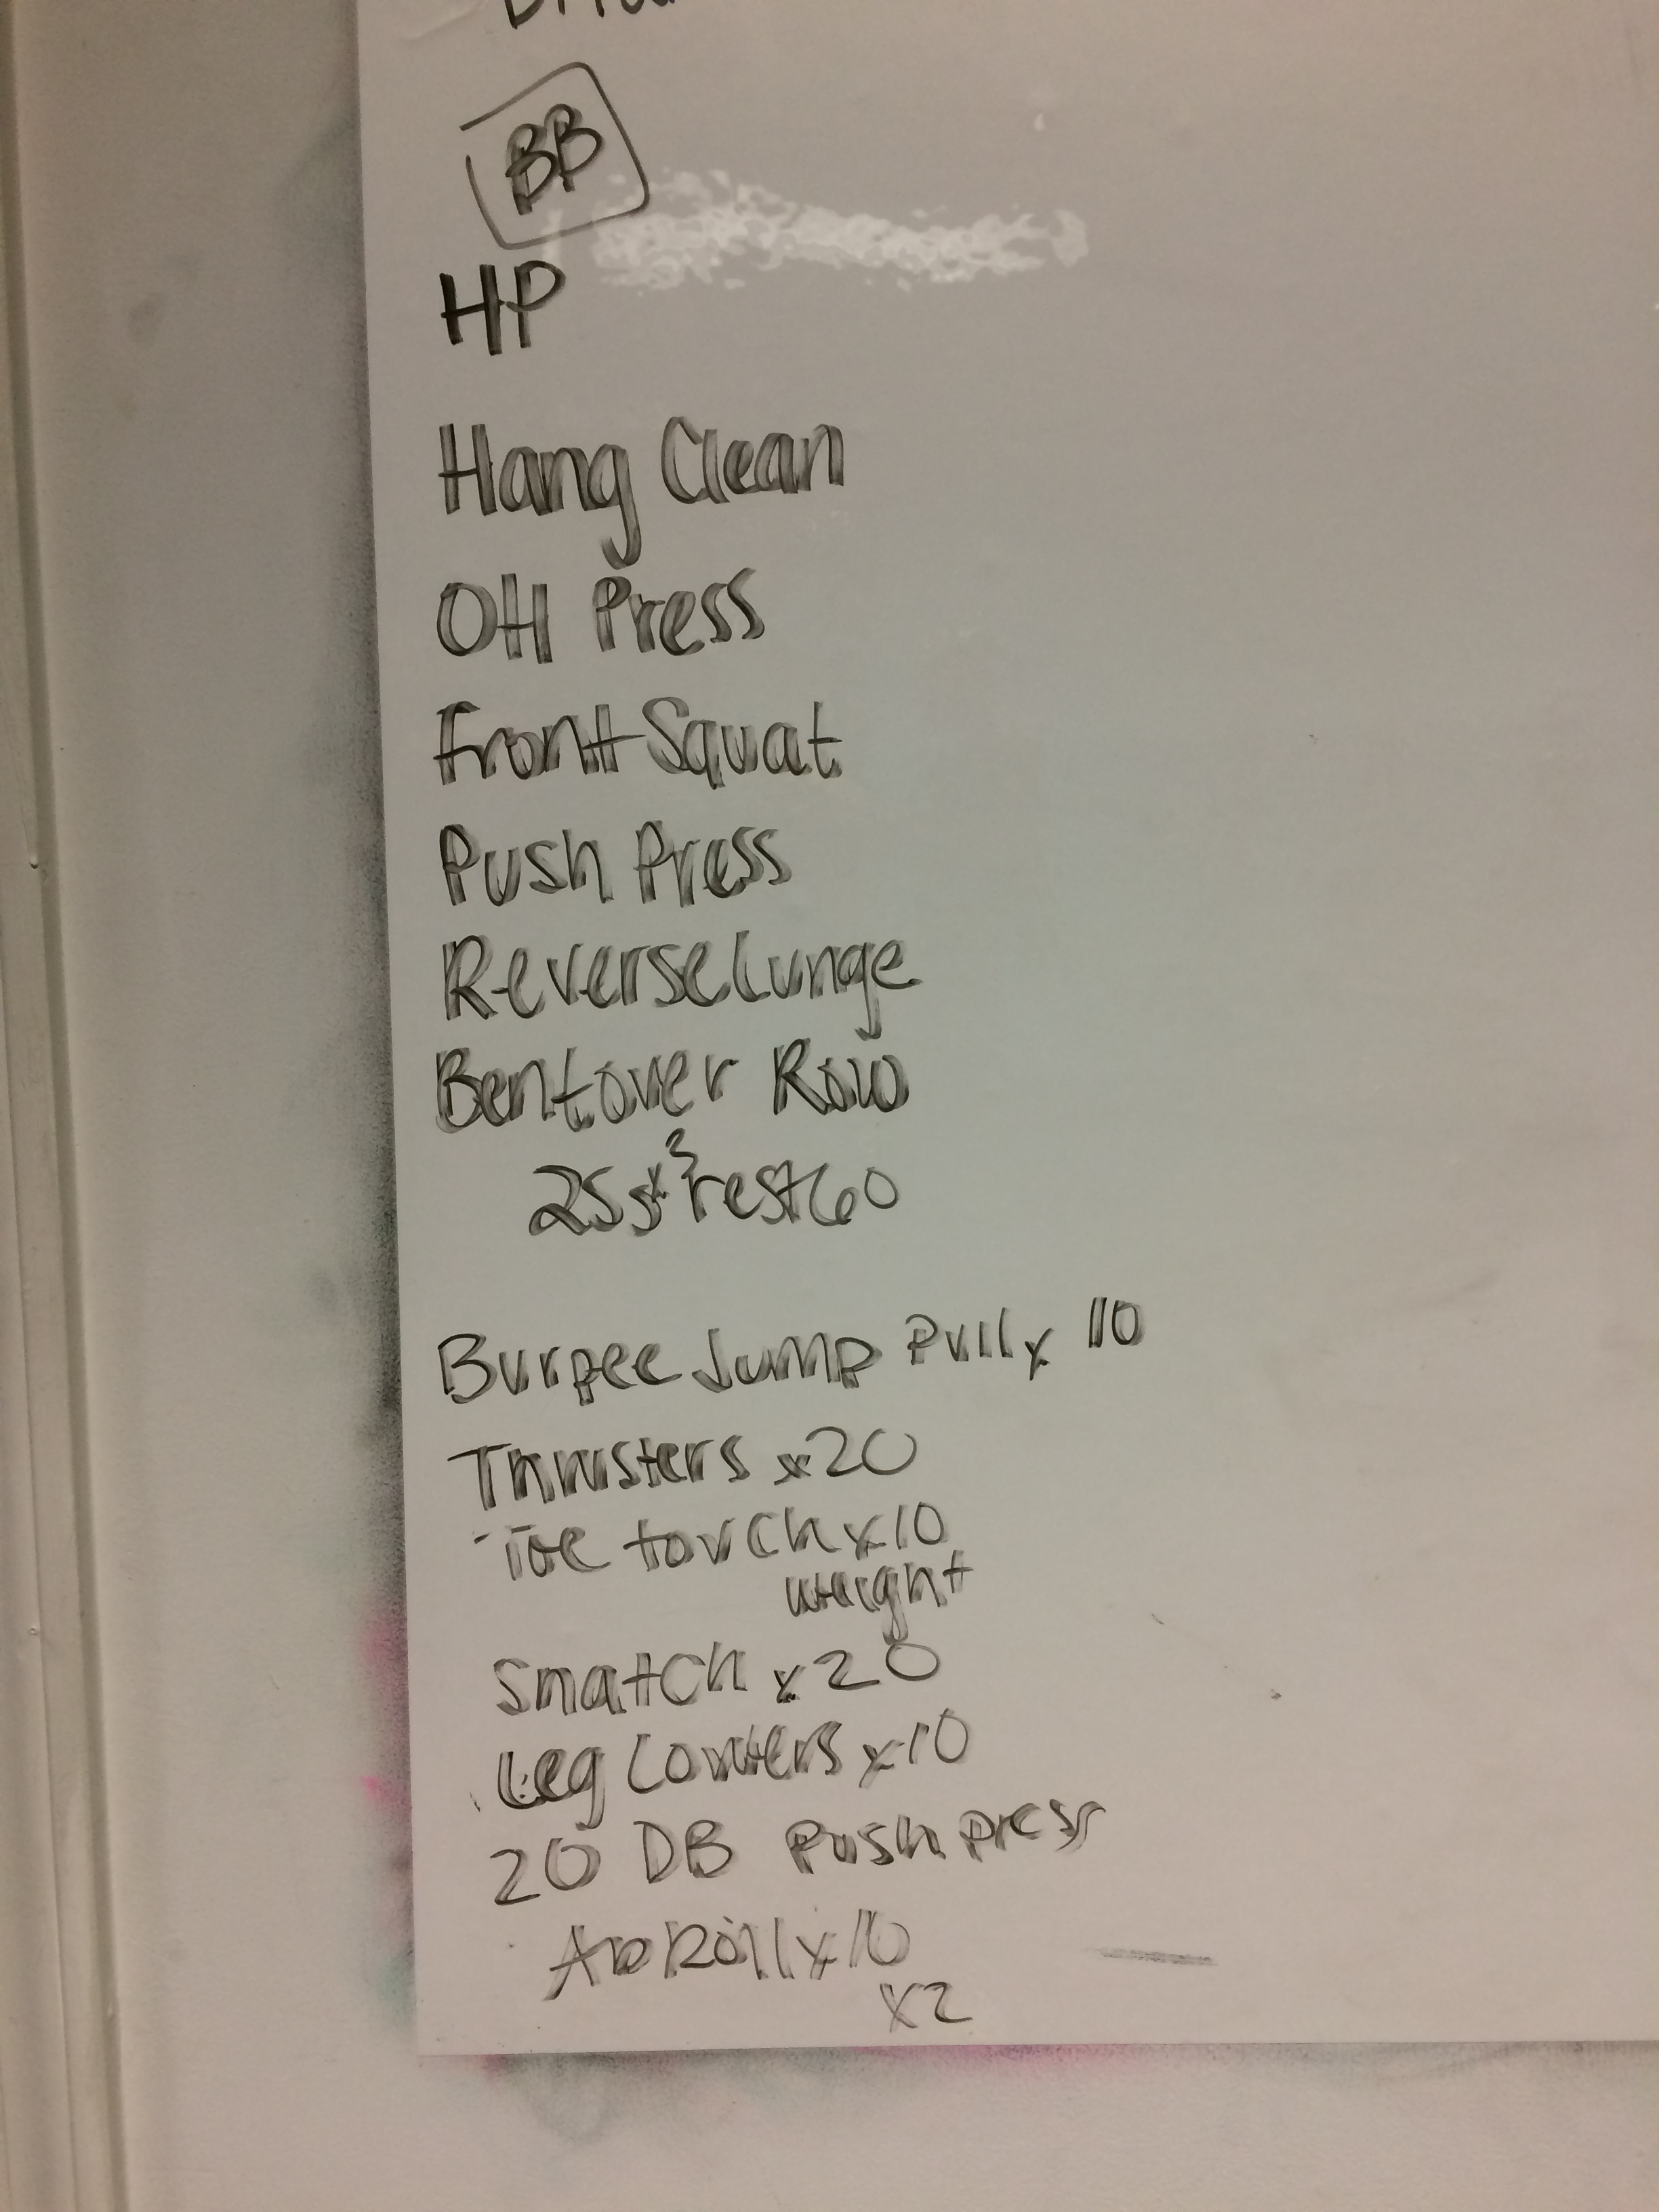 BB
HP
Hang Clean
OH Press
Front Squat
Push Press
Reverse Lunge
Bentover Row
25s x3 rest 60
Burpee Jump Pull x 10
Thrusters x20
Toe touch x10
weight
Snatch x20
Leg Lowers x10
20 DB Push press
Ab Roll x10
x2